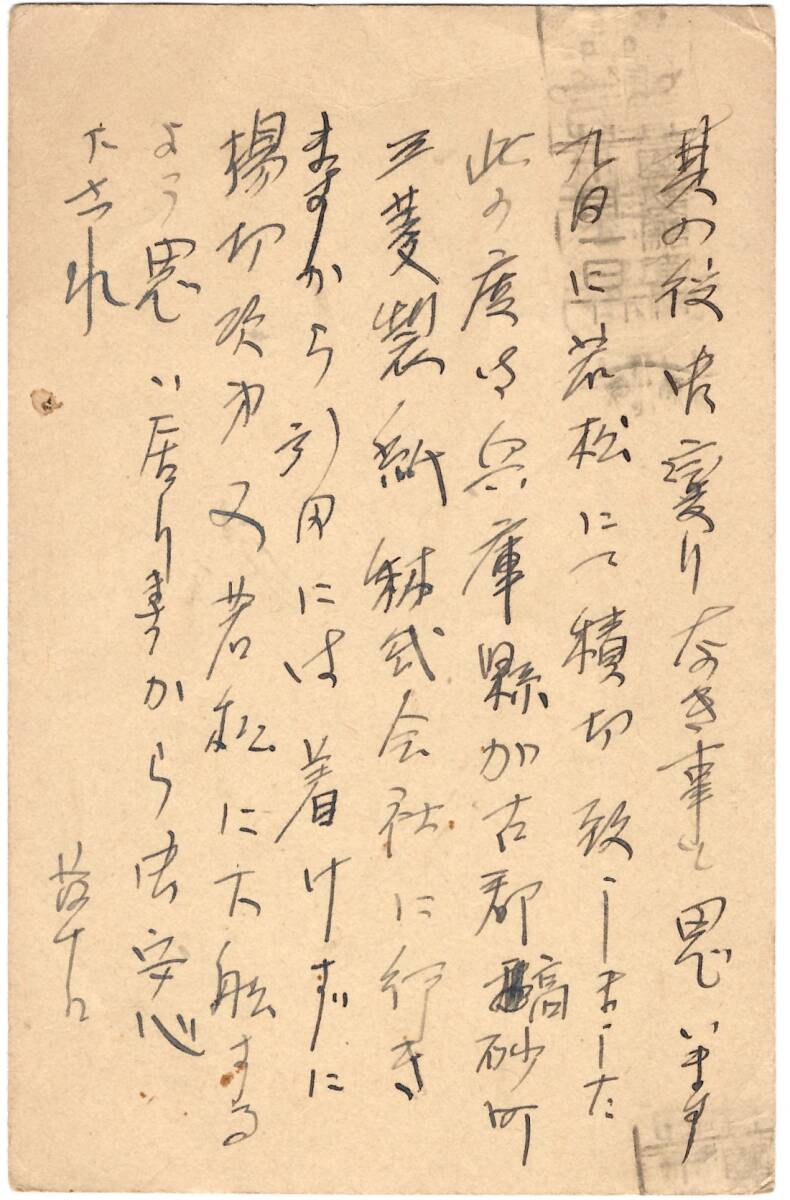 其の後御変り なき事と思います
九日に若松にて積切致しました
此の度は兵庫縣加古郡高砂町
三菱製紙株式会社に行き
ますから引田には着けずに
揚切次第又若松に大舩する
よう思い居りますから御安心
下され